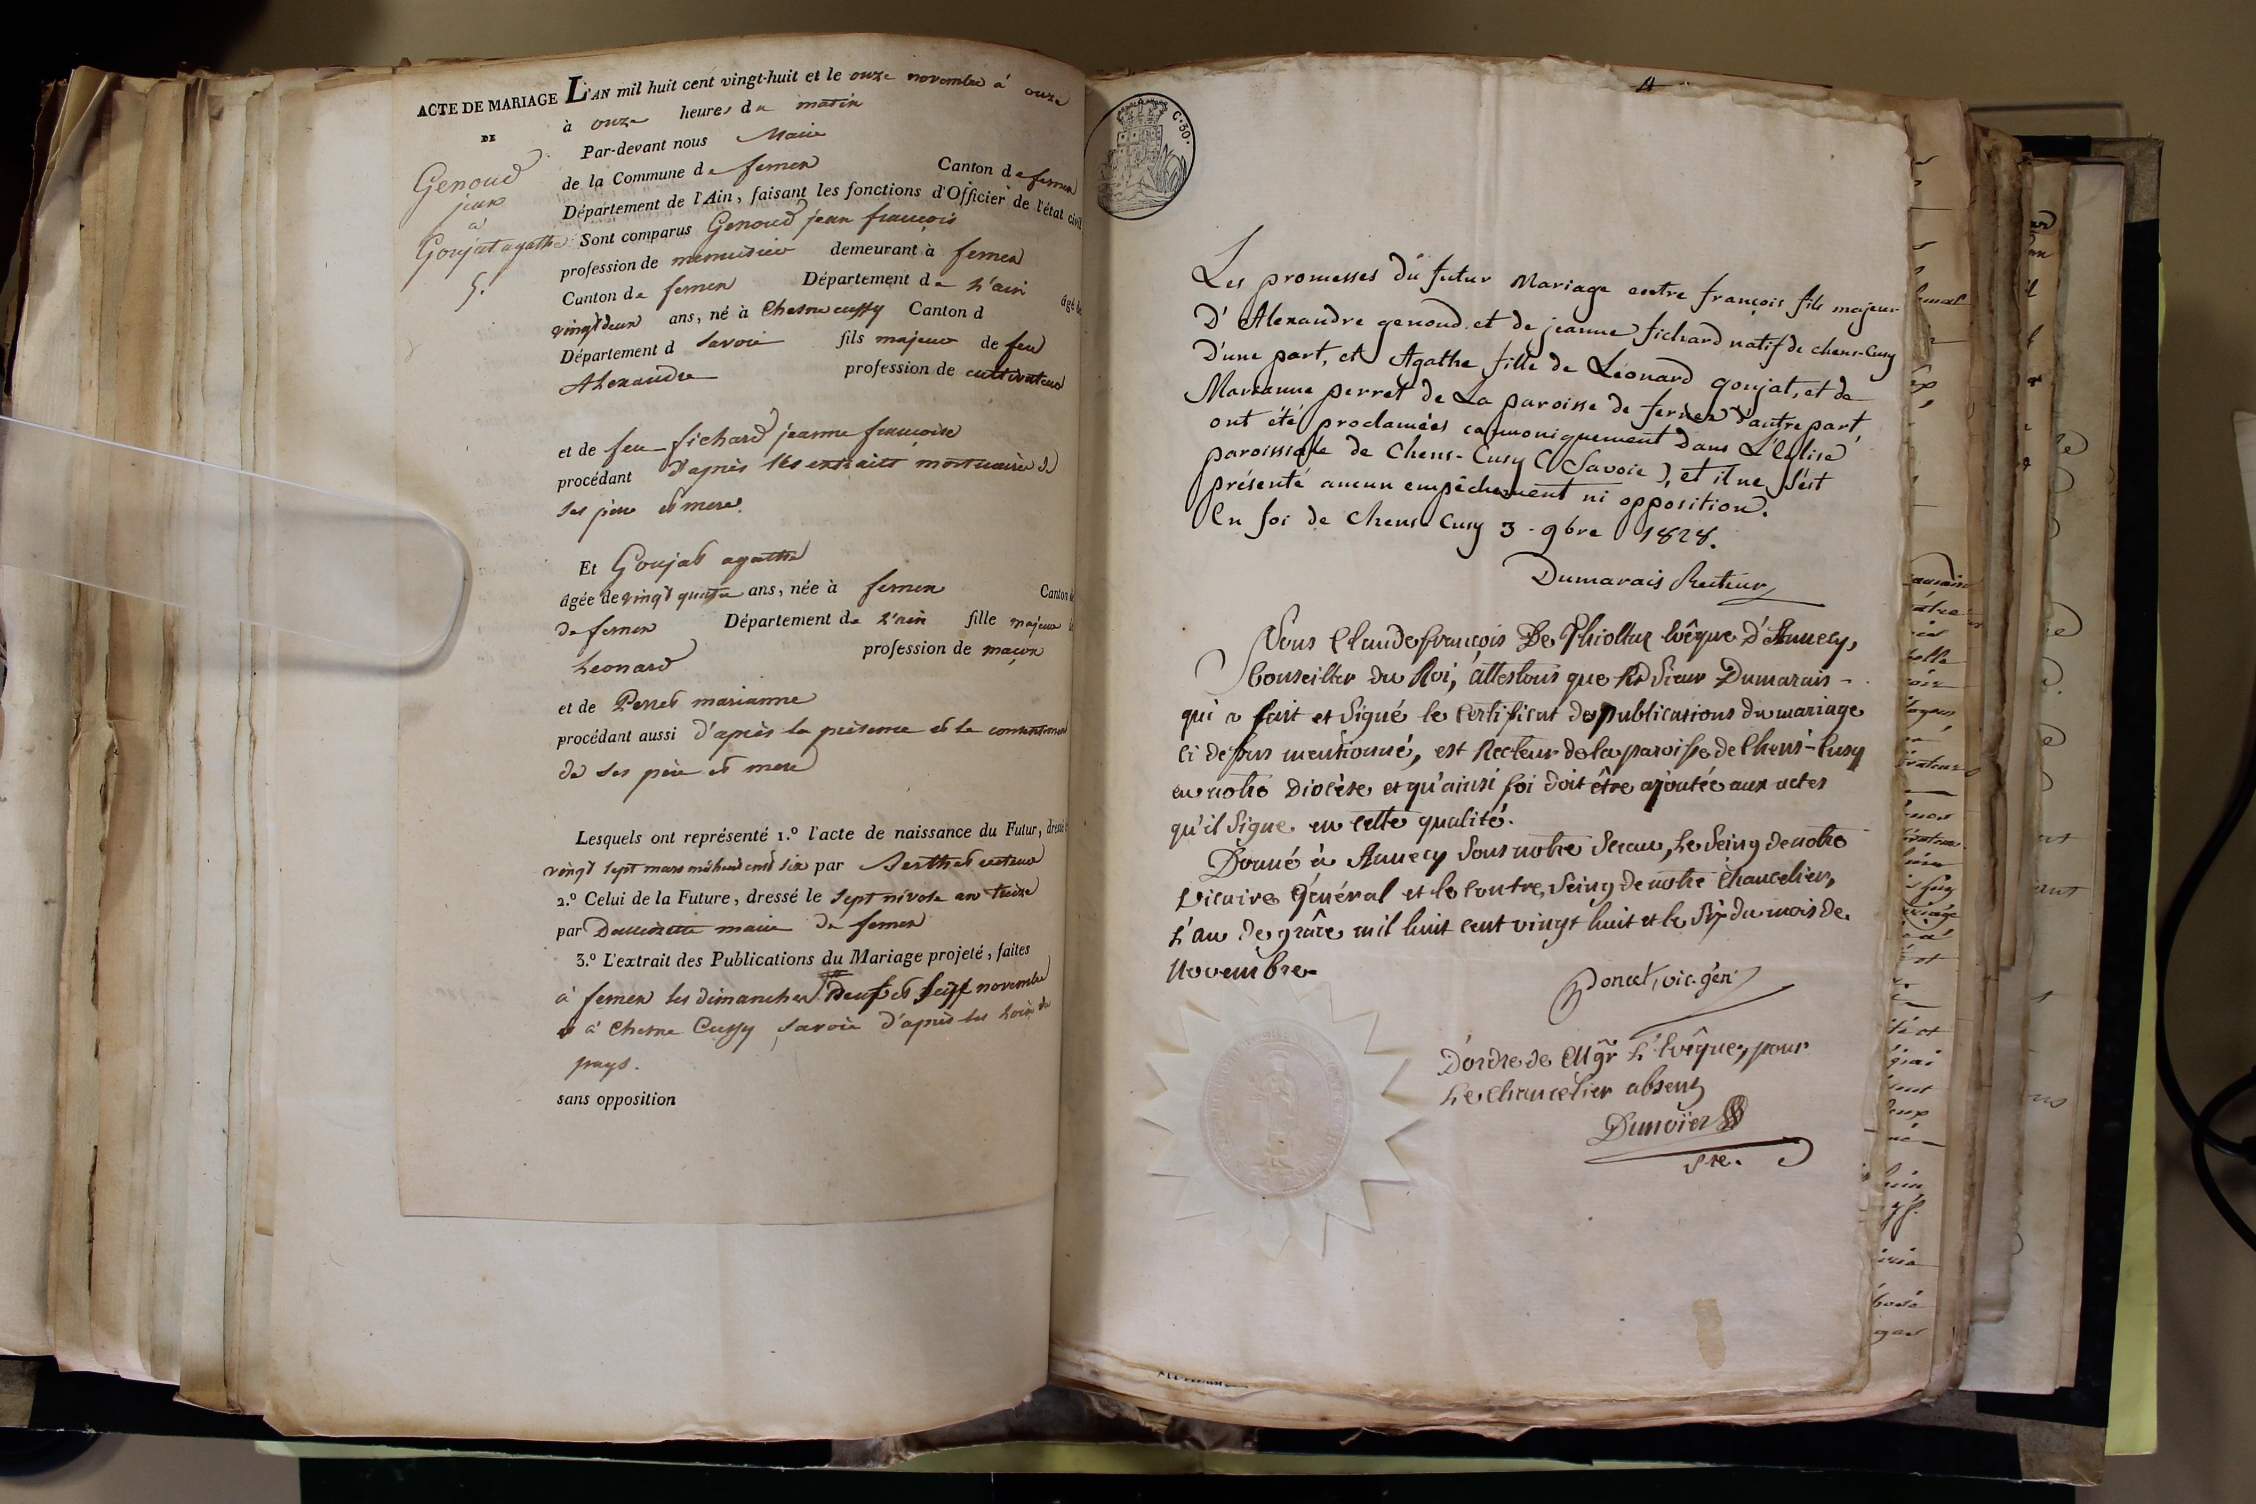 ACTE DE MARIAGE
DE
Genoud
jean
à
Goujat agathe
5.
L'AN mil huit cent vingt-huit et le onze novembre à onze
à onze heures du matin
Par-devant nous Maire
de la Commune de fernex Canton de fernex
Département de l'Ain, faisant les fonctions d'Officier de l'état civil
Sont comparus Genoud jean françois
profession de menuisier demeurant à fernex
Canton de fernex Département de L'ain âgé de
vingt deux ans, né à Chesne cussy Canton d
Département d Savoie fils majeur de feu
Alexandre profession de cultivateur
et de feu fichard jeanne françoise
procédant d'après les extraits mortuaires de
ses père et mere.
Et Goujat agathe
âgée de vingt quatre ans, née à fernex Canton de
de fernex Département de L'ain fille majeure de
Leonard profession de maçon
et de Perret marianne
procédant aussi d'après la présence et le consentement
de ses père et mere
Lesquels ont représenté 1.º l'acte de naissance du Futur, dressé le
vingt sept mars mil huit cent six par Berthet recteur
2.º Celui de la Future, dressé le sept nivose an treize
par maire de fernex
3.º L'extrait des Publications du Mariage projeté, faites
à fernex les dimanches deux et neuf novembre
et à Chesne Cussy, Savoie d'après les loix du
pays.
sans opposition
C. 30.
Les promesses du futur Mariage entre françois fils majeur
D'Alexandre genoud et de jeanne fichard natif de chens-Cusy
D'une part, et Agathe fille de Léonard goujat, et de
Marianne perret de La paroisse de fernex d'autre part,
ont été proclamées cannoniquement Dans L'Eglise
paroissiale de Chens-Cusy (Savoie), et il ne s'est
présenté aucun empêchement ni opposition.
En foi de Chens-Cusy 3 - 9bre 1828.
Dumarais Recteur
Nous Claude françois De Thiollaz Evêque d'Annecy,
Conseiller du Roi, attestons que Rd Sieur Dumarais -
qui a fait et signé le certificat des publications du mariage
ci dessus mentionné, est Recteur de la paroisse de Chens-Cusy
en notre Diocèse et qu'ainsi foi doit être ajoutée aux actes
qu'il signe en cette qualité.
Donné à Annecy sous notre sceau, le seing de notre
Vicaire Général et le contre seing de notre Chancelier,
L'an de grâce mil huit cent vingt huit et le six du mois de
Novembre
Poncet, vic. gén.
D'ordre de Mgr L'Evêque, pour
Le Chancelier absent
Dunoïer
S re.